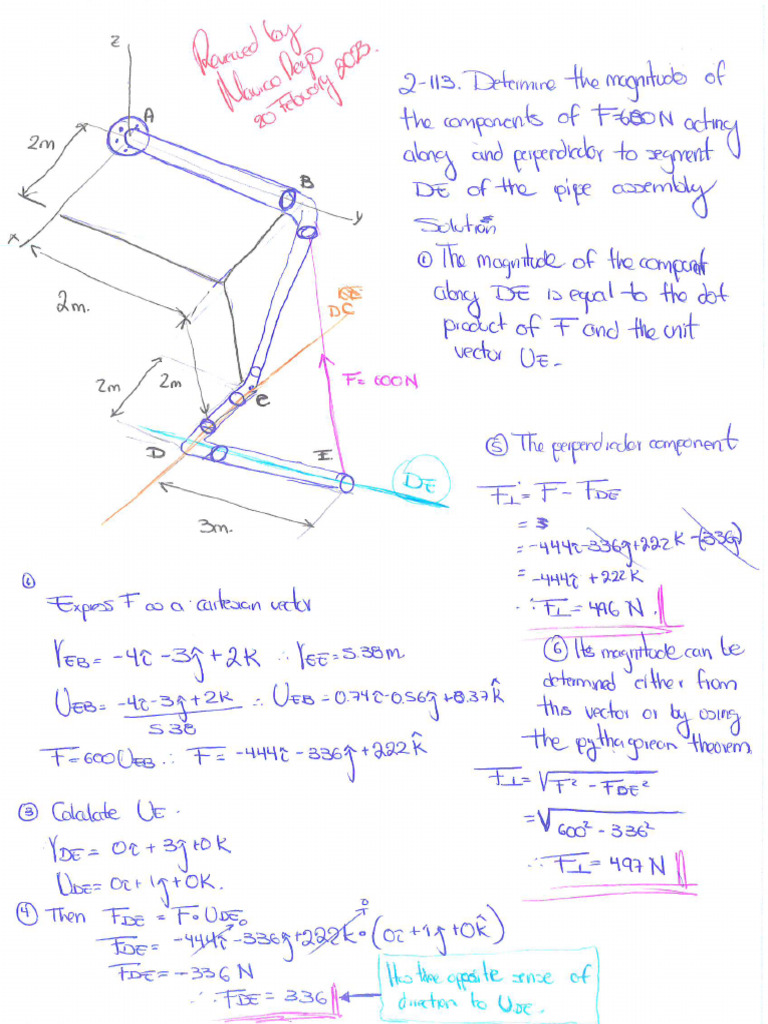 Reviewed by
20 February 2023.
2-113. Determine the magnitude of
the components of F=600N acting
along and perpendicular to segment
DE of the pipe assembly
Solution
① The magnitude of the component
along DE is equal to the dot
product of F and the unit
vector UE.
z
A
2m
B
y
x
2m.
DC
2m
2m
F=600N
C
D
E
DE
3m.
Express F as a cartesian vector
rEB = -4i - 3j + 2k ∴ rEE = 5.38m
UEB = -4i - 3j + 2k ∴ UEB = 0.74i - 0.56j + 0.37k̂
5.38
F = 600UEB ∴ F = -444i - 336j + 222k̂
③ Calculate UE.
rDE = 0i + 3j + 0k
UDE = 0i + 1j + 0k.
④ Then FDE = F • UDE
FDE = -444i - 336j + 222k • (0i + 1j + 0k̂)
FDE = -336 N
∴ FDE = 336
Has the opposite sense of
direction to UDE.
⑤ The perpendicular component
F⊥ = F - FDE
=
= -444i - 336j + 222k - (336j)
= -444i + 222k
∴ F⊥ = 496 N.
⑥ Its magnitude can be
determined either from
this vector or by using
the pythagorean theorem
F⊥ = √F² - FDE²
= √600² - 336²
∴ F⊥ = 497 N